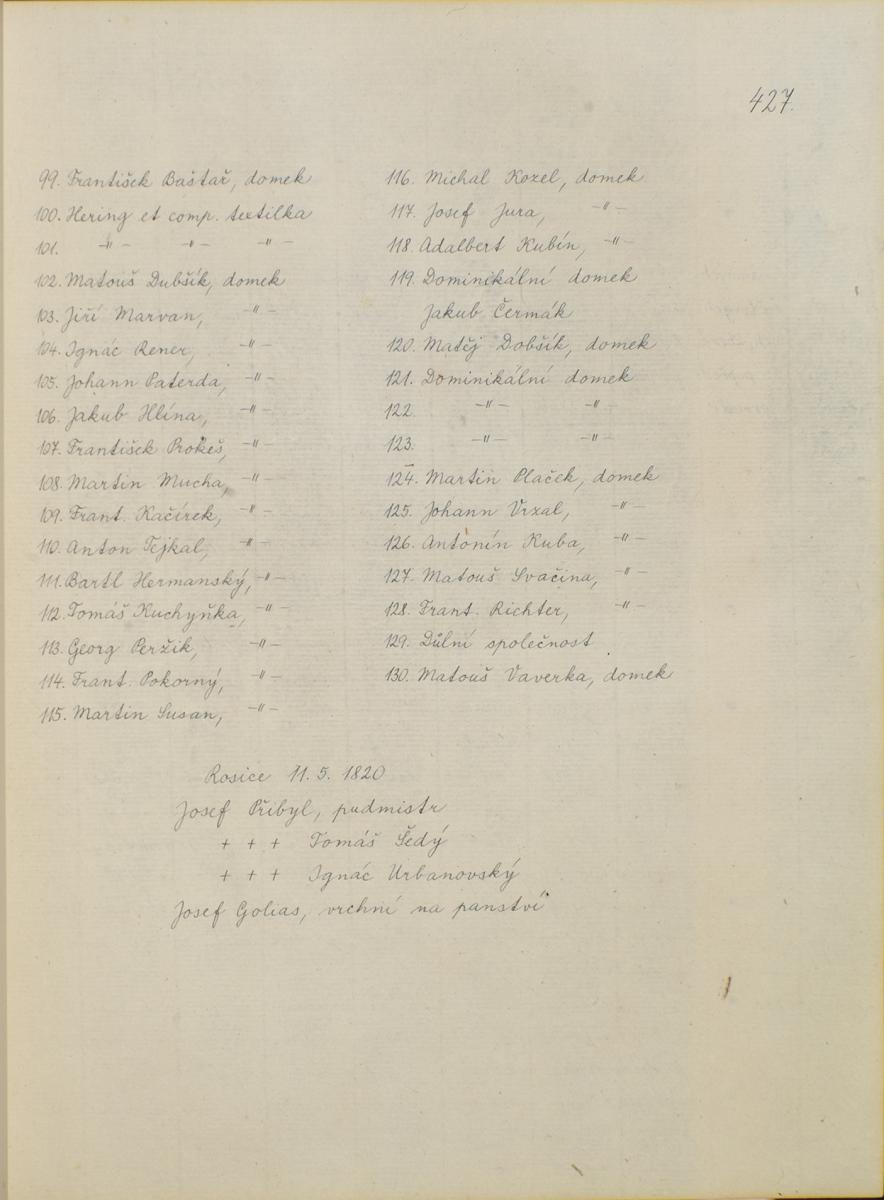 427.
99. František Baštař, domek
100. Hering et comp. textilka
101. -"- -"- -"-
102. Matouš Dubšík, domek
103. Jiří Marvan, -"-
104. Ignác Rener, -"-
105. Johann Paterda, -"-
106. Jakub Hlína, -"-
107. František Prokeš, -"-
108. Martin Mucha, -"-
109. Frant. Kačírek, -"-
110. Anton Tejkal, -"-
111. Bartl Hermanský, -"-
112. Tomáš Kuchyňka, -"-
113. Georg Peržik, -"-
114. Frant. Pokorný, -"-
115. Martin Susan, -"-
116. Michal Kozel, domek
117. Josef Jura, -"-
118. Adalbert Kubín, -"-
119. Dominikální domek
Jakub Čermák
120. Matěj Dobšík, domek
121. Dominikální domek
122. -"- -"-
123. -"- -"-
124. Martin Plaček, domek
125. Johann Vrzal, -"-
126. Antonín Kuba, -"-
127. Matouš Svačina, -"-
128. Frant. Richter, -"-
129. Důlní společnost
130. Matouš Vaverka, domek
Rosice 11. 5. 1820
Josef Přibyl, pudmistr
+ + + Tomáš Šedý
+ + + Ignác Urbanovský
Josef Golias, vrchní na panství